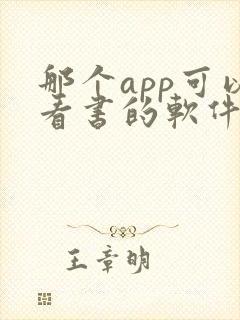 那个app可以
看书的軟件
王章明